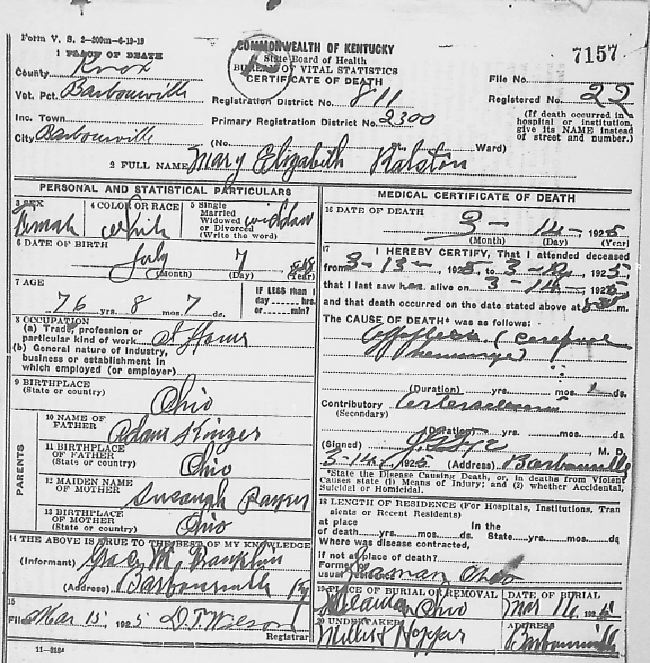 Form V. S. 2-200m-6-19-19
COMMONWEALTH OF KENTUCKY
State Board of Health
BUREAU OF VITAL STATISTICS
CERTIFICATE OF DEATH
7157
1 PLACE OF DEATH
County Knox
File No.
Vot. Pct. Barbourville
Registration District No. 811
Registered No. 22
Inc. Town
Primary Registration District No. 2300
(If death occurred in hospital or institution, give its NAME instead of street and number.)
City Barbourville
(No. Ward)
2 FULL NAME Mary Elizabeth Ralston
PERSONAL AND STATISTICAL PARTICULARS
3 SEX Female
4 COLOR OR RACE white
5 Single Married Widowed or Divorced (Write the word) widow
6 DATE OF BIRTH July 7
(Month) (Day) (Year)
7 AGE
76 yrs. 8 mos. 7 ds.
IF LESS than 1 day hrs. or min.?
8 OCCUPATION
(a) Trade, profession or particular kind of work At Home
(b) General nature of industry, business or establishment in which employed (or employer)
9 BIRTHPLACE
(State or country) Ohio
PARENTS
10 NAME OF FATHER Adam Kinzer
11 BIRTHPLACE OF FATHER
(State or country) Ohio
12 MAIDEN NAME OF MOTHER
13 BIRTHPLACE OF MOTHER
(State or country) Ohio
14 THE ABOVE IS TRUE TO THE BEST OF MY KNOWLEDGE
(Informant) Grace M. Franklin
(Address) Barbourville Ky
15
Filed Mar 15, 1925 D. T. Wilson
Registrar
11-3184
MEDICAL CERTIFICATE OF DEATH
16 DATE OF DEATH 3- 14-, 1925
(Month) (Day) (Year)
17 I HEREBY CERTIFY, That I attended deceased
from 3-13-, 1925, to 3-14, 1925,
that I last saw her alive on 3-14-, 1925,
and that death occurred on the date stated above at m.
The CAUSE OF DEATH* was as follows:
(Duration) yrs. mos. 1 ds.
Contributory
(Secondary)
(Duration) yrs. mos. ds.
(Signed) M. D.
3-14, 1925 (Address) Barbourville
*State the Disease Causing Death, or, in deaths from Violent Causes state (1) Means of Injury; and (2) whether Accidental, Suicidal or Homicidal.
18 LENGTH OF RESIDENCE (For Hospitals, Institutions, Transients or Recent Residents)
At place of death yrs. mos. ds. In the State yrs. mos. ds.
Where was disease contracted,
If not at place of death?
Former or usual residence Ohio
19 PLACE OF BURIAL OR REMOVAL Ohio
DATE OF BURIAL Mar 16, 1925
20 UNDERTAKER Miller & Hopper
ADDRESS Barbourville